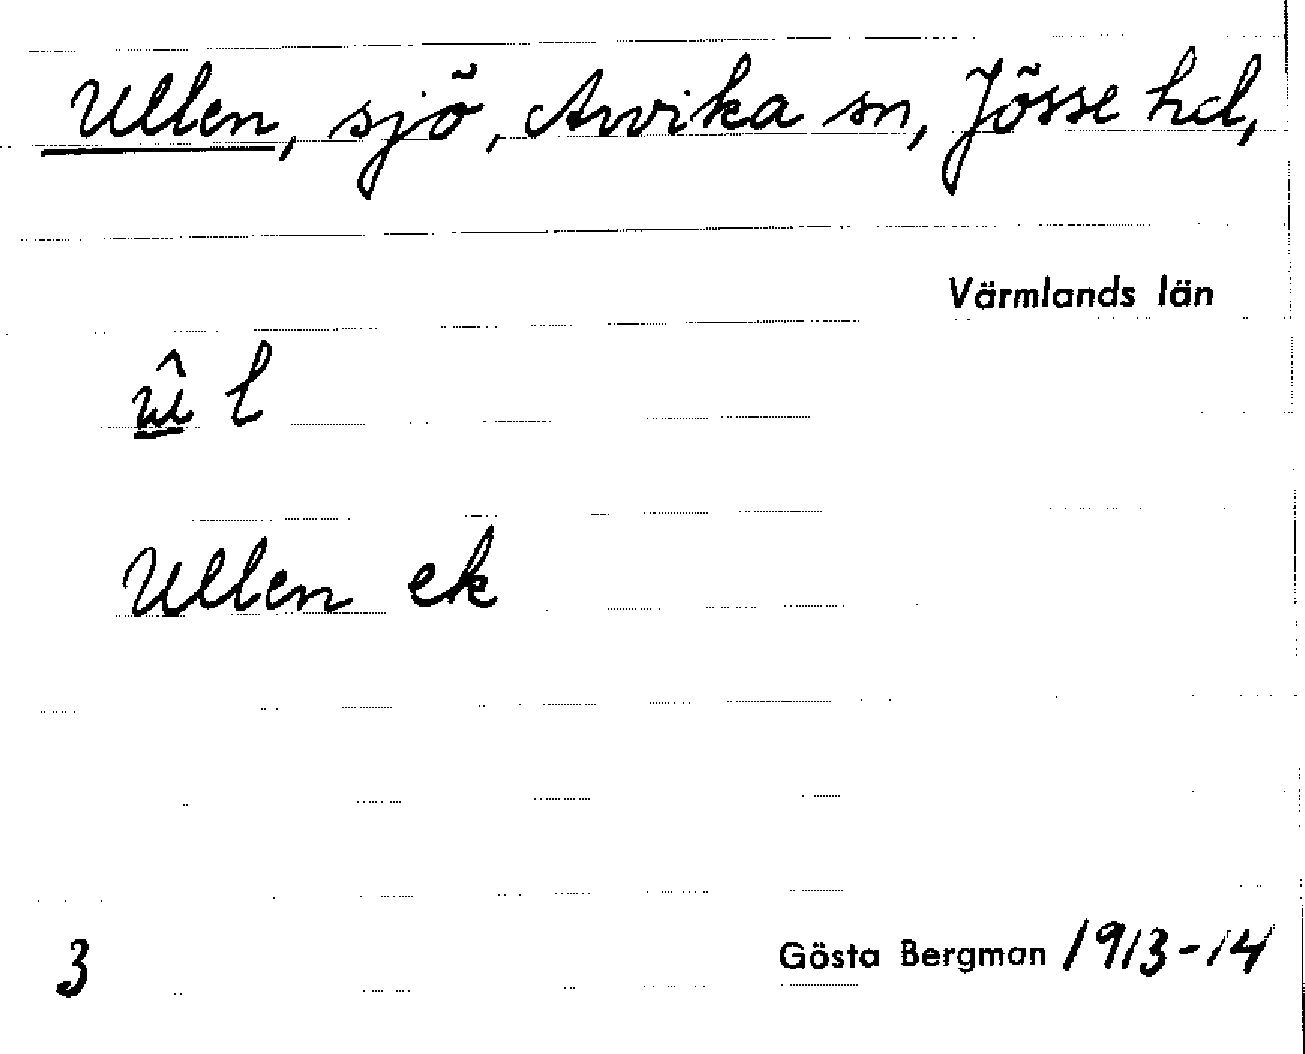 Ullen, sjö, Arvika sn, Jösse hd,
Värmlands län
û l
Ullen ek
3
Gösta Bergman 1913-14